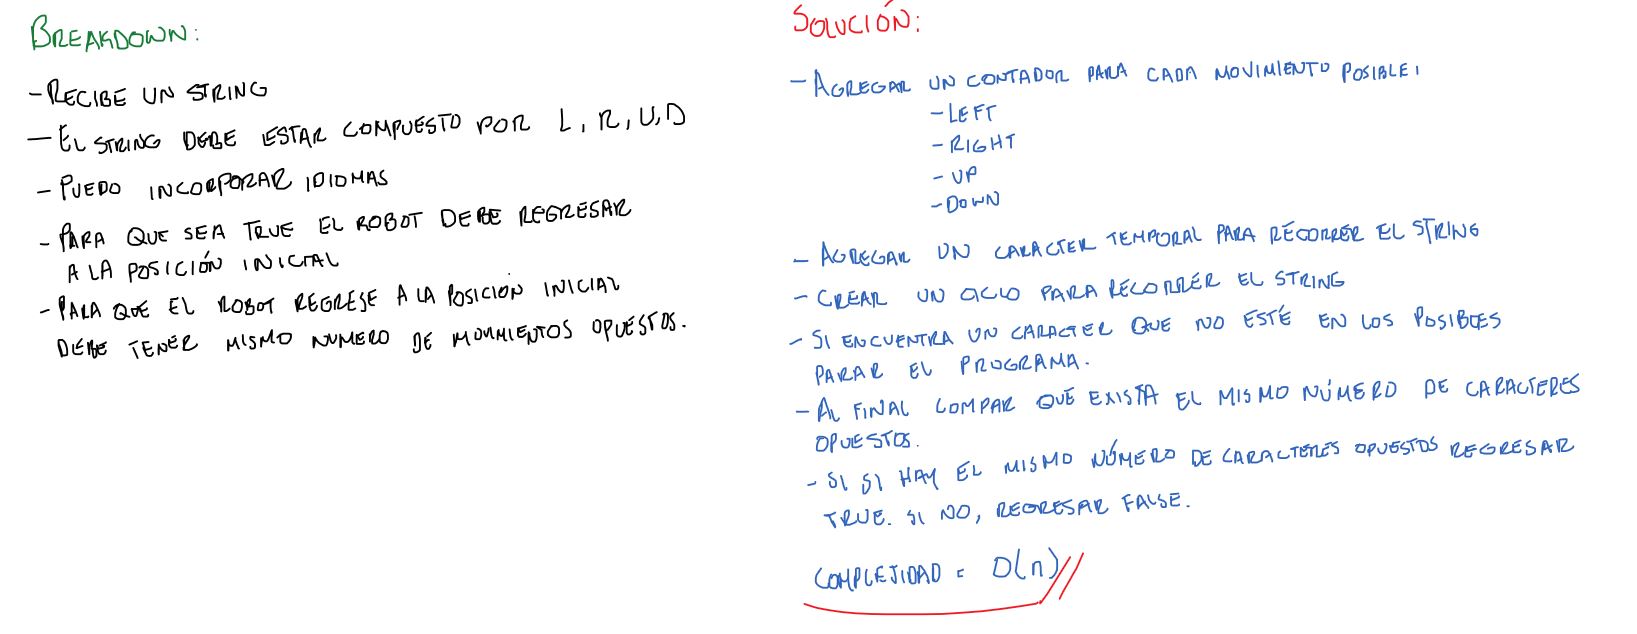 BREAKDOWN:
- RECIBE UN STRING
- EL STRING DEBE ESTAR COMPUESTO POR L, R, U, D
- PUEDO INCORPORAR IDIOMAS
- PARA QUE SEA TRUE EL ROBOT DEBE REGRESAR
A LA POSICIÓN INICIAL
- PARA QUE EL ROBOT REGRESE A LA POSICIÓN INICIAL
DEBE TENER MISMO NUMERO DE MOVIMIENTOS OPUESTOS.
SOLUCIÓN:
- AGREGAR UN CONTADOR PARA CADA MOVIMIENTO POSIBLE:
- LEFT
- RIGHT
- UP
- DOWN
- AGREGAR UN CARACTER TEMPORAL PARA RECORRER EL STRING
- CREAR UN CICLO PARA RECORRER EL STRING
- SI ENCUENTRA UN CARACTER QUE NO ESTÉ EN LOS POSIBLES
PARAR EL PROGRAMA.
- AL FINAL COMPAR QUE EXISTA EL MISMO NÚMERO DE CARACTERES
OPUESTOS.
- SI SI HAY EL MISMO NÚMERO DE CARACTERES OPUESTOS REGRESAR
TRUE. SI NO, REGRESAR FALSE.
COMPLEJIDAD = O(n)//